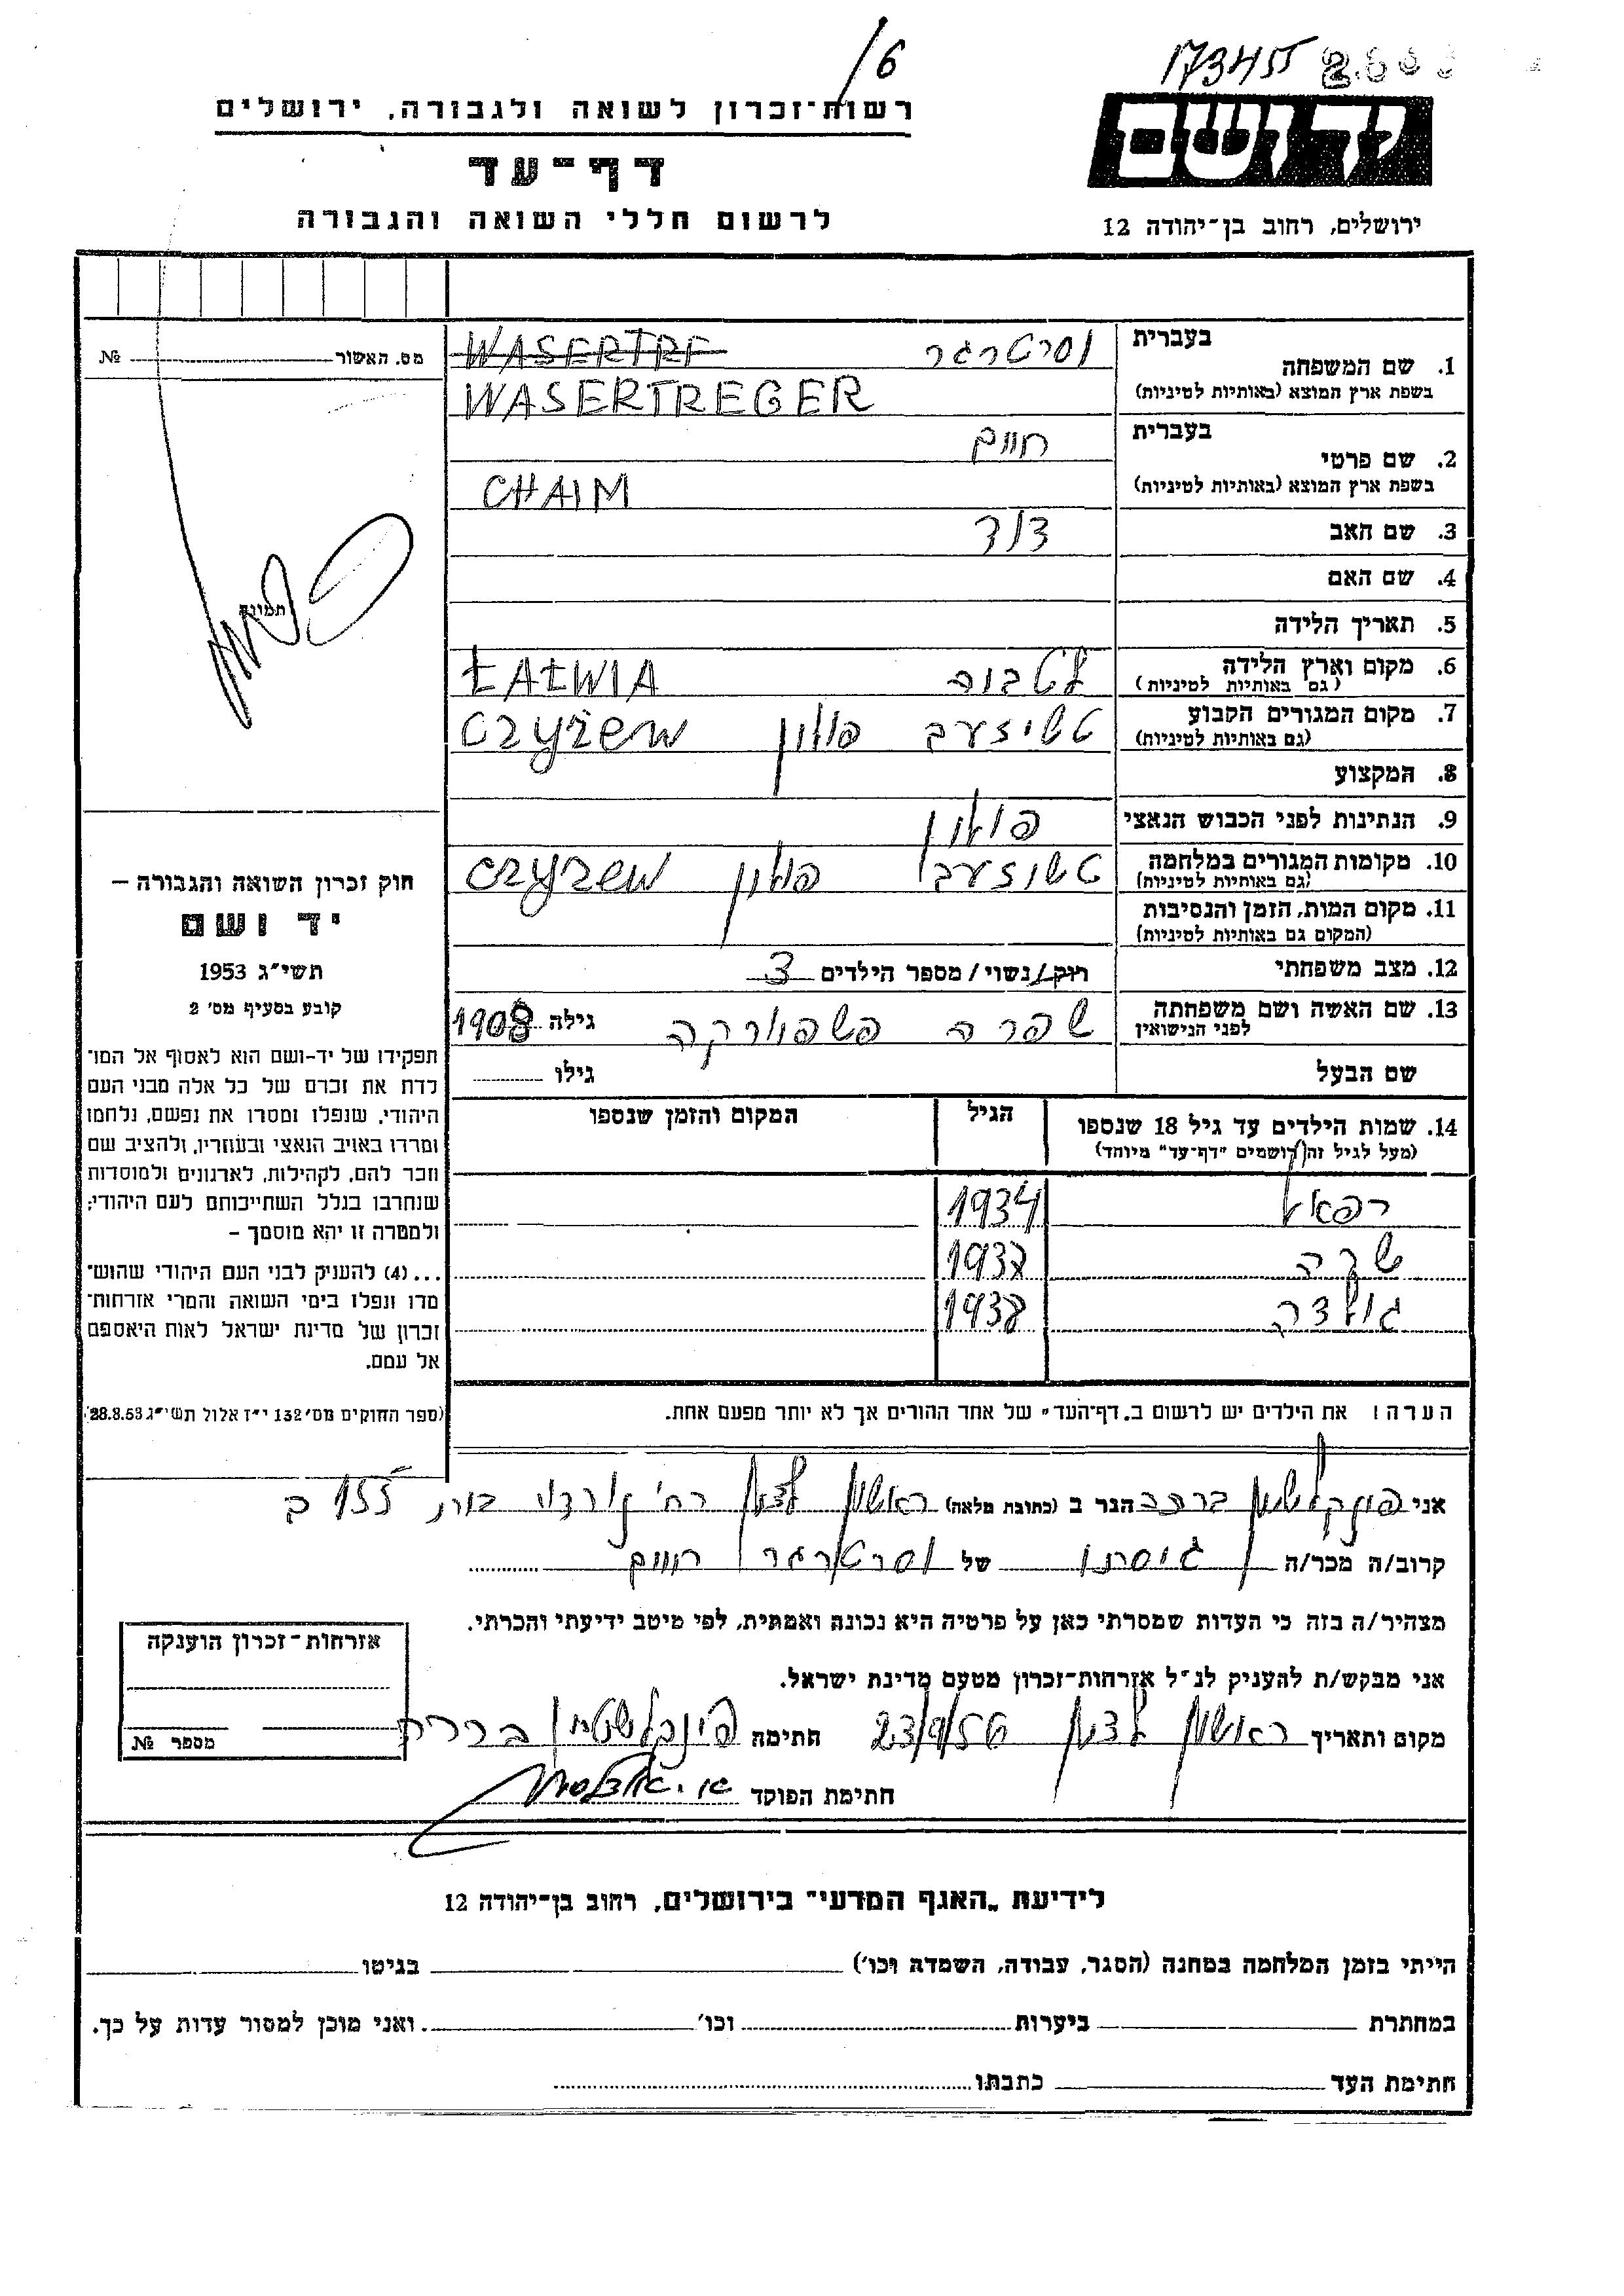 /6
17345
רשות־זכרון לשואה ולגבורה, ירושלים
דף־עד
לרשום חללי השואה והגבורה
יד ושם
ירושלים, רחוב בן־יהודה 12
מס. האשור № 
תמונה
חוק זכרון השואה והגבורה –
יד ושם
תשי״ג 1953
קובע בסעיף מס׳ 2
תפקידו של יד-ושם הוא לאסוף אל המו־
לדת את זכרם של כל אלה מבני העם
היהודי, שנפלו ומסרו את נפשם, נלחמו
ומרדו באויב הנאצי ובעוזריו, ולהציב שם
וזכר להם, לקהילות, לארגונים ולמוסדות
שנחרבו בגלל השתייכותם לעם היהודי;
ולמטרה זו יהא מוסמך –
...(4) להעניק לבני העם היהודי שהוש־
מדו ונפלו בימי השואה והמרי אזרחות־
זכרון של מדינת ישראל לאות היאספם
אל עמם.
(ספר החוקים מס׳ 132 י״ז אלול תשי״ג 28.8.53)
בעברית וסרטרגר WASERTRE
1. שם המשפחה
בשפת ארץ המוצא (באותיות לטיניות) WASERTREGER
בעברית חיים
2. שם פרטי
בשפת ארץ המוצא (באותיות לטיניות) CHAIM
3. שם האב דוד
4. שם האם
5. תאריך הלידה
6. מקום וארץ הלידה לטביה ŁAŁWIA
(גם באותיות לטיניות)
7. מקום המגורים הקבוע טשיזעב פולין Czyżew
(גם באותיות לטיניות)
8. המקצוע
9. הנתינות לפני הכבוש הנאצי פולין
10. מקומות המגורים במלחמה טשיזעב פולין Czyzew
(גם באותיות לטיניות)
11. מקום המות, הזמן והנסיבות
(המקום גם באותיות לטיניות)
12. מצב משפחתי רוק/נשוי/מספר הילדים 3
13. שם האשה ושם משפחתה שפרה גילה 1908
לפני הנישואין
שם הבעל גילו
14. שמות הילדים עד גיל 18 שנספו הגיל המקום והזמן שנספו
(מעל לגיל זה רושמים ״דף־עד״ מיוחד)
רפאל 1934
שרה 1937
גולדה 1938
הערה: את הילדים יש לרשום ב„דף־העד״ של אחד ההורים אך לא יותר מפעם אחת.
אני פינקלשטין ברכה הגר ב (כתובת מלאה) ראשון לציון רח׳ בית 155 ב
קרוב/ה מכר/ה גיסתו של וסרטרגר חיים
מצהיר/ה בזה כי העדות שמסרתי כאן על פרטיה היא נכונה ואמתית, לפי מיטב ידיעתי והכרתי.
אני מבקש/ת להעניק לנ״ל אזרחות־זכרון מטעם מדינת ישראל.
מקום ותאריך ראשון לציון 23/9/56 חתימה פינקלשטין ברכה
חתימת הפוקד
אזרחות־זכרון הוענקה
מספר №
לידיעת „האגף המדעי״ בירושלים, רחוב בן־יהודה 12
הייתי בזמן המלחמה במחנה (הסגר, עבודה, השמדה וכו׳) בגיטו
במחתרת ביערות וכו׳ ואני מוכן למסור עדות על כך.
חתימת העד כתבתו